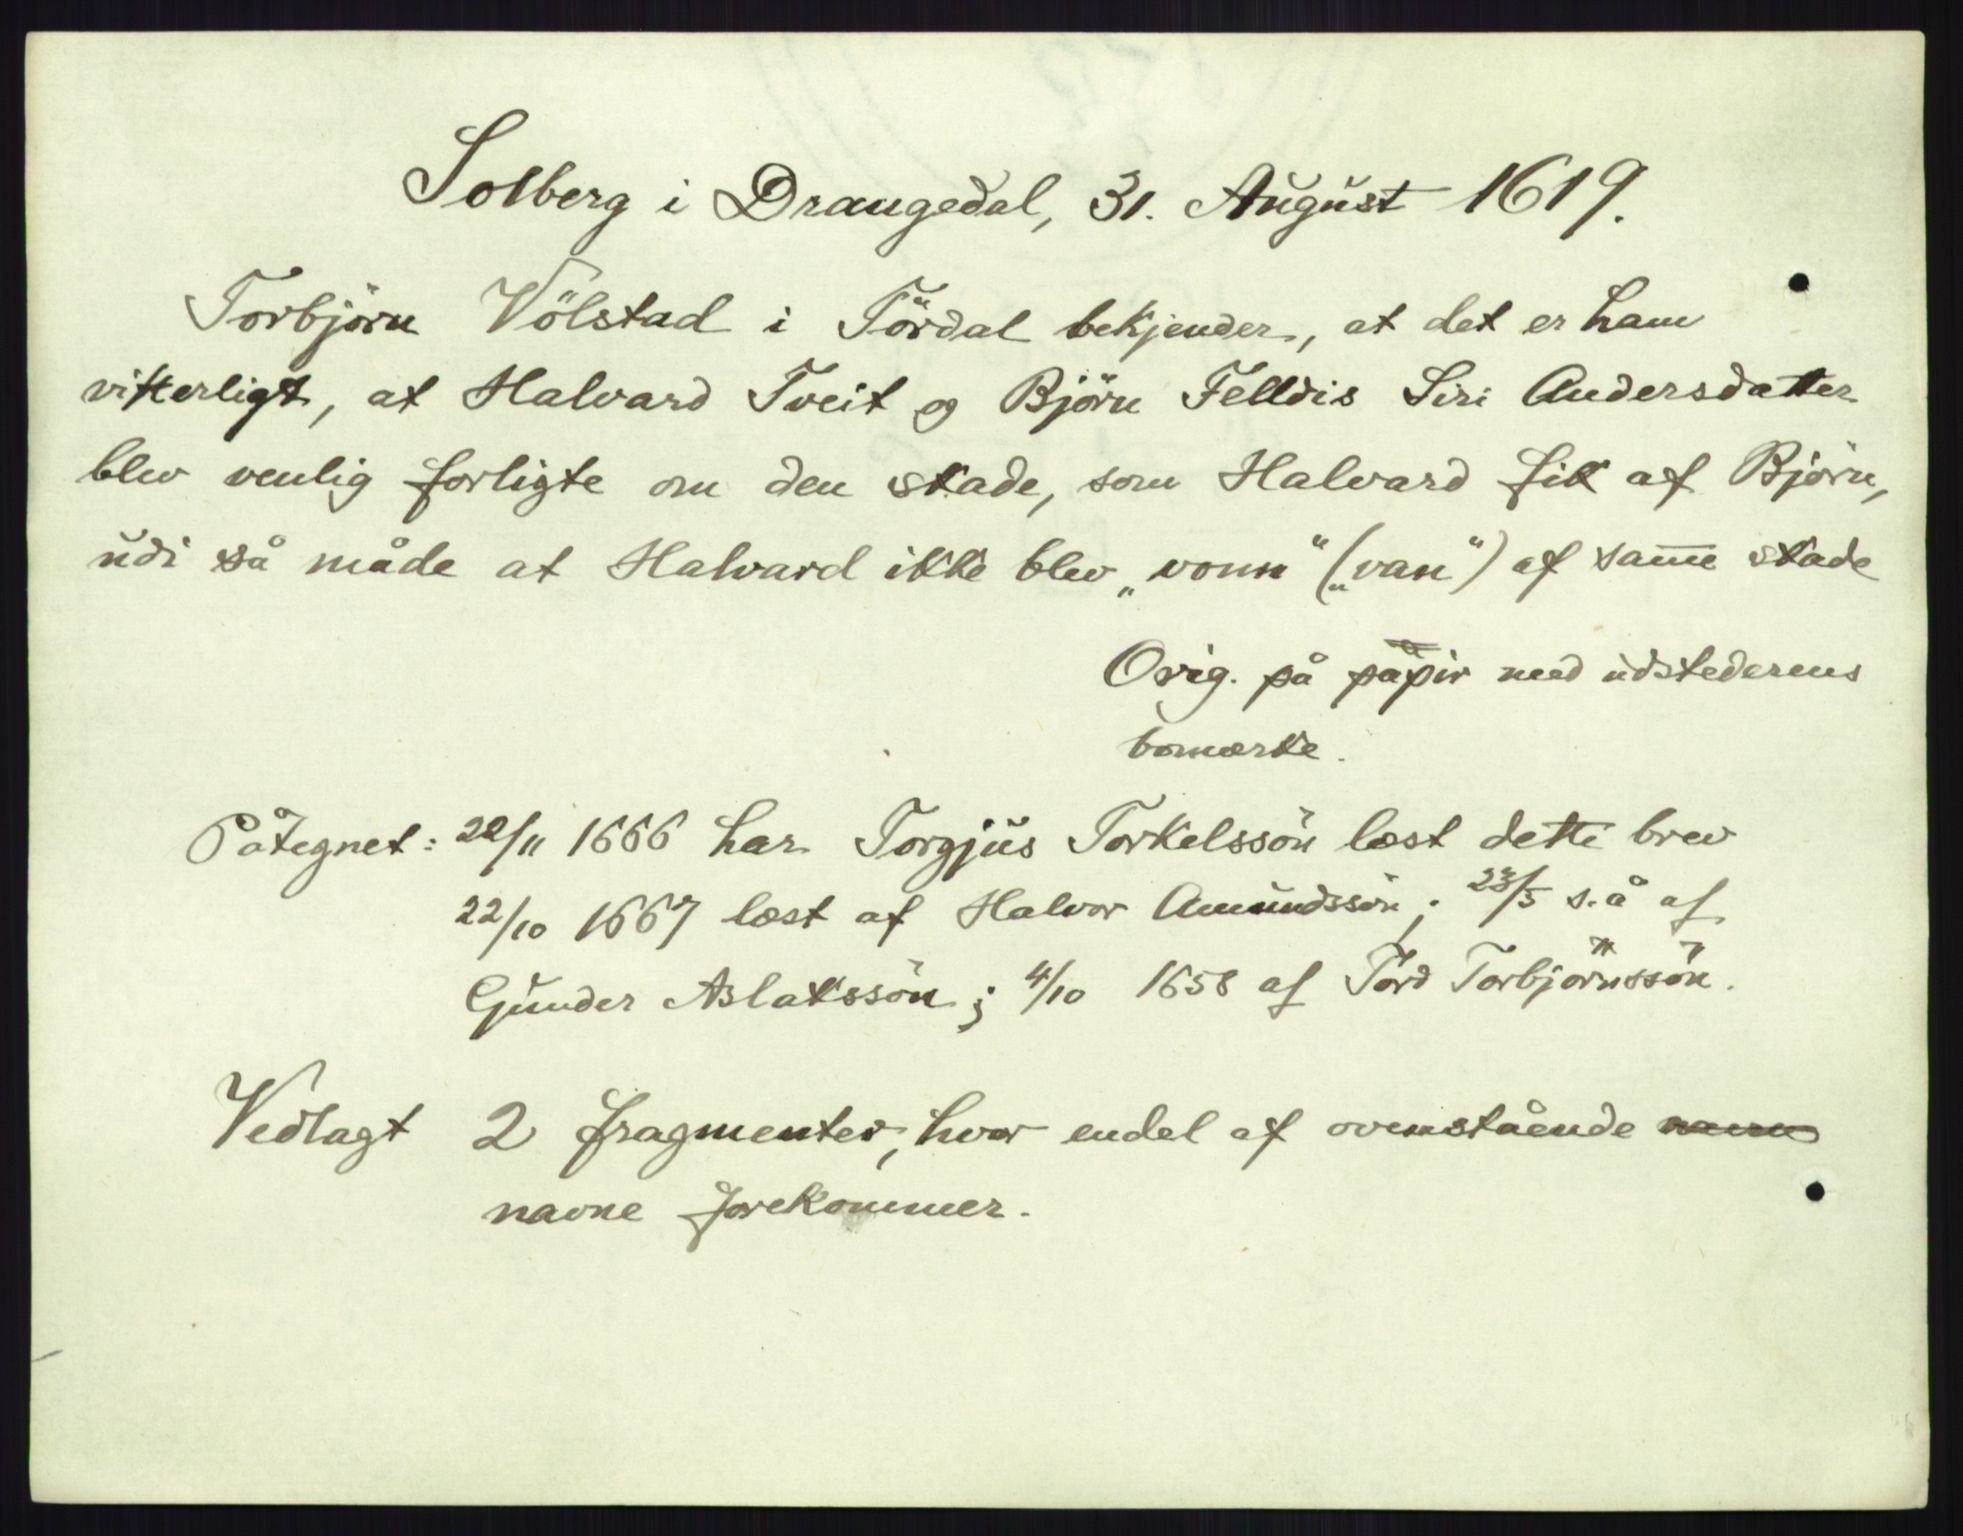 Solberg i Draugedal, 31. August 1619.
Torbjörn Völstad i Tördal bekjender, at det er ham
vitterligt, at Halvard Tveit og Björn Felldis Siri Andersdatter
blev venlig forligte om den skade, som Halvard fik af Björn,
udi så måde at Halvard ikke blev „vonn“ („van“) af sam̅e skade
Orig. på papir med udstederens
bomærke.
Påtegnet: 22/11 1666 har Torgjus Torkelssön læst dette brev
22/10 1667 læst af Halvor Amundssön; 23/5 s. å af
Gunder Aslakssön; 4/10 1658 af Tord Torbjörnssön.
Vedlagt 2 fragmenter, hvor endel af ovenstående
navne forekommer.